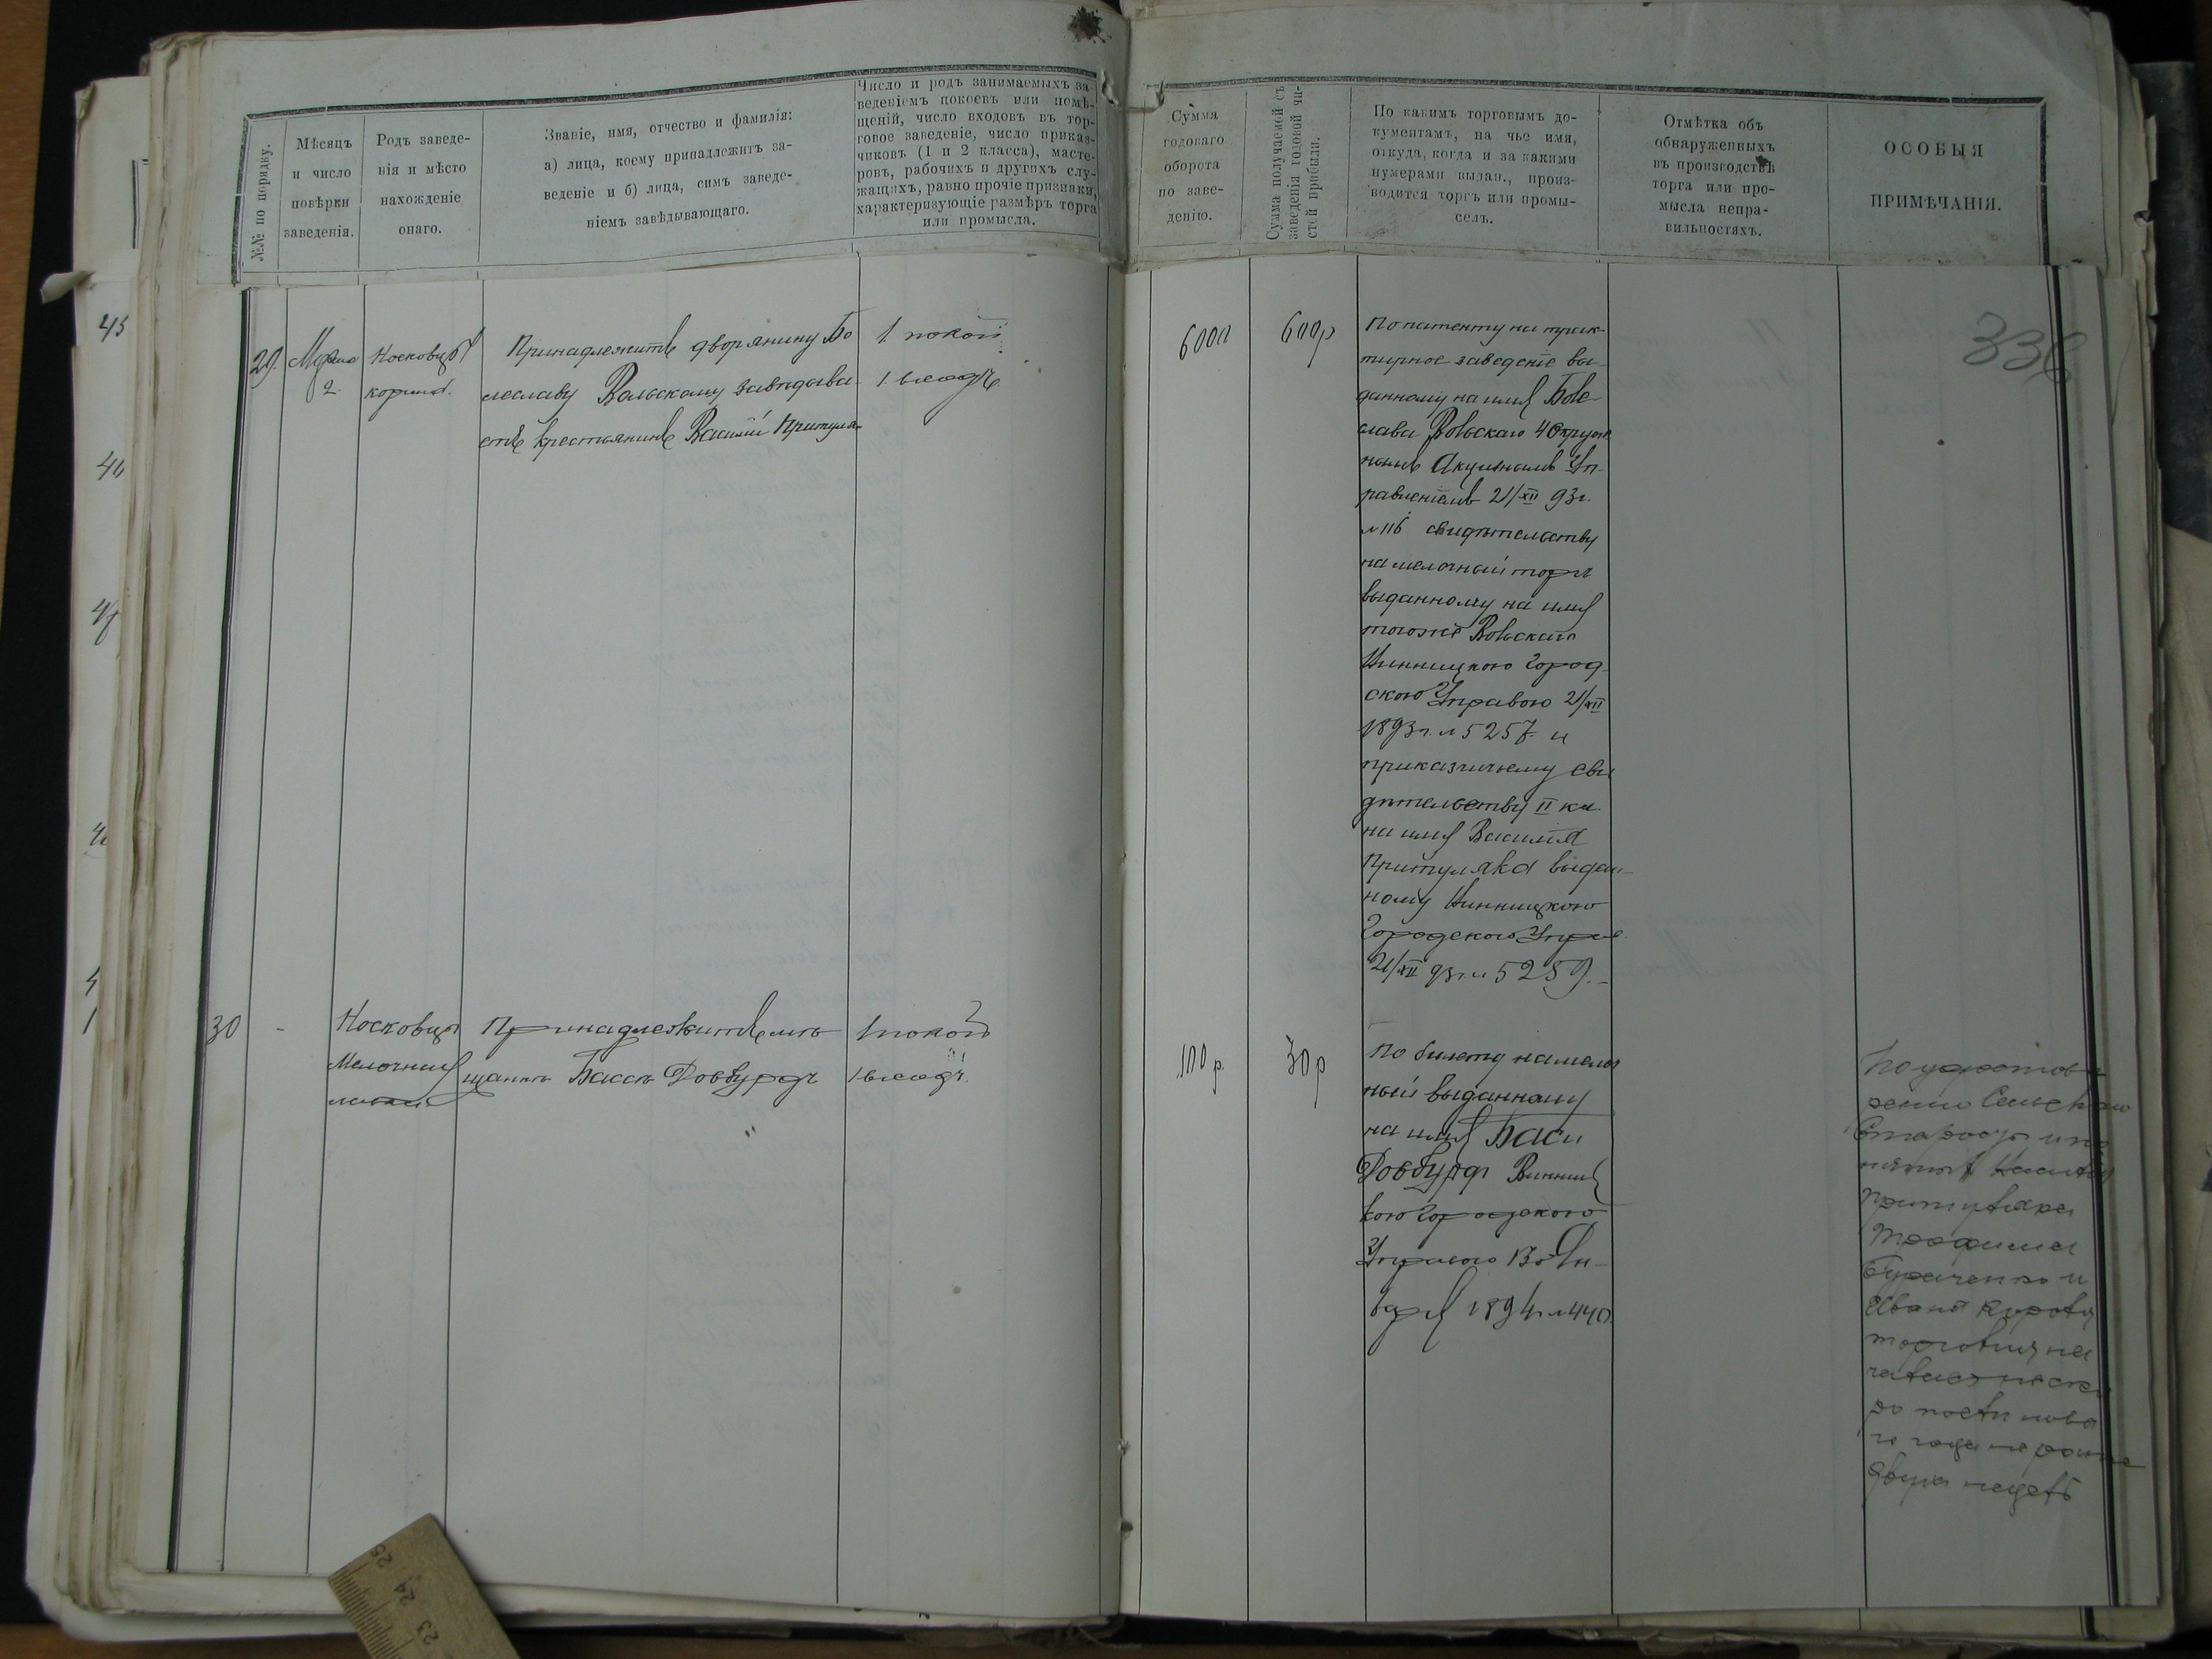 №№ по порядку.
Мѣсяцъ
и число
повѣрки
заведенія.
Родъ заведе-
нія и мѣсто
нахожденіе
онаго.
Званіе, имя, отчество и фамилія:
а) лица, коему принадлежитъ за-
веденіе и б) лица, симъ заведе-
ніемъ завѣдывающаго.
Число и родъ занимаемыхъ за-
веденіемъ покоевъ или помѣ-
щеній, число входовъ въ тор-
говое заведеніе, число приказ-
чиковъ (1 и 2 класса), масте-
ровъ, рабочихъ и другихъ слу-
жащихъ, равно прочіе признаки,
характеризующіе размѣръ торга
или промысла.
Сумма
годоваго
оборота
по заве-
денію.
Сумма получаемой съ
заведенія годовой чи-
стой прибыли.
По какимъ торговымъ до-
кументамъ, на чье имя,
откуда, когда и за какими
нумерами выдан., произ-
водится торгъ или промы-
селъ.
Отмѣтка объ
обнаруженныхъ
въ производствѣ
торга или про-
мысла непра-
вильностяхъ.
ОСОБЫЯ
ПРИМѢЧАНІЯ.
336
29.
Марта
2
Носковцы
корчма.
Принадлежитъ дворянину Бо
леславу Вольскому завѣдыва-
етъ крестьянинъ Василій Притуля-
1 покой
1 входъ
6000
600 р
По патенту на трак-
тирное заведеніе вы-
данному на имя Боле-
слава Вольскаго 4 Окруж
нымъ Акцизнымъ Уп-
равленіемъ 21/XII 93 г.
№ 116 свидѣтельству
на мелочный торгъ
выданному на имя
тогоже Вольскаго
Винницкою Город-
скою Управою 21/XII
1893 г. № 5257 и
приказчичьему сви
дѣтельству II кл.
на имя Василія
Притуляка выдан-
ному Винницкою
Городскою Управ
21/XII 93 г. № 5259.-
30
-
Носковцы
Мелочная
лавка
Принадлежитъ мѣ
щанкѣ Басѣ Довбурдъ
1 покой
1 входъ.
100 р.
30 р
По билету на мелоч
ный выданному
на имя Баси
Довбурдъ Винниц
кою Городскою
Управою 13 Ян-
варя 1894 г. № 440.
По удостовѣ
ренію Сельскаго
Старосты и по
нятыхъ
Притуляка
Трофима
и
Ивана
торговля на
чалась
новa
го года не ранѣе
двухъ недѣль